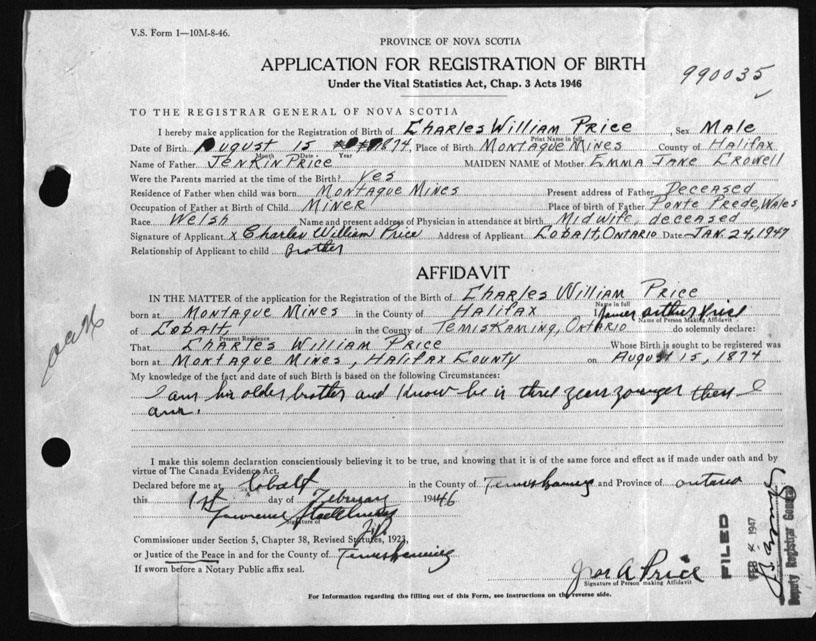 V.S. Form 1—10M-8-46.
PROVINCE OF NOVA SCOTIA
APPLICATION FOR REGISTRATION OF BIRTH
Under the Vital Statistics Act, Chap. 3 Acts 1946
990035
TO THE REGISTRAR GENERAL OF NOVA SCOTIA
I hereby make application for the Registration of Birth of Charles William Price, Sex Male
Print Name in full
Date of Birth August 15 1874, Place of Birth Montague Mines County of Halifax
Month Date Year
Name of Father Jenkin Price MAIDEN NAME of Mother Emma Jane Crowell
Were the Parents married at the time of the Birth? Yes
Residence of Father when child was born Montague Mines Present address of Father Deceased
Occupation of Father at Birth of Child Miner Place of birth of Father Ponte Prede, Wales
Race Welsh Name and present address of Physician in attendance at birth Midwife, deceased
Signature of Applicant x Charles William Price Address of Applicant Cobalt, Ontario Date Jan. 24, 1947
Relationship of Applicant to child Brother
AFFIDAVIT
IN THE MATTER of the application for the Registration of the Birth of Charles William Price
Name in full
born at Montague Mines in the County of Halifax I, James Arthur Price
Name of Person Making Affidavit
of Cobalt, in the County of Temiskaming, Ontario do solemnly declare:
Present Residence
That Charles William Price Whose Birth is sought to be registered was
born at Montague Mines, Halifax County on August 15, 1874
My knowledge of the fact and date of such Birth is based on the following Circumstances:
I am his older brother and know he is three years younger then I
am.
I make this solemn declaration conscientiously believing it to be true, and knowing that it is of the same force and effect as if made under oath and by
virtue of The Canada Evidence Act.
Declared before me at Cobalt in the County of Temiskaming and Province of Ontario
this 1st day of February 1946
Lawrence
Signature of
J.P.
Commissioner under Section 5, Chapter 38, Revised Statutes, 1923,
or Justice of the Peace in and for the County of Temiskaming
If sworn before a Notary Public affix seal.
Jas A Price
Signature of Person making Affidavit
FILED
FEB 4 1947
Deputy Registrar General
For Information regarding the filling out of this Form, see instructions on the reverse side.